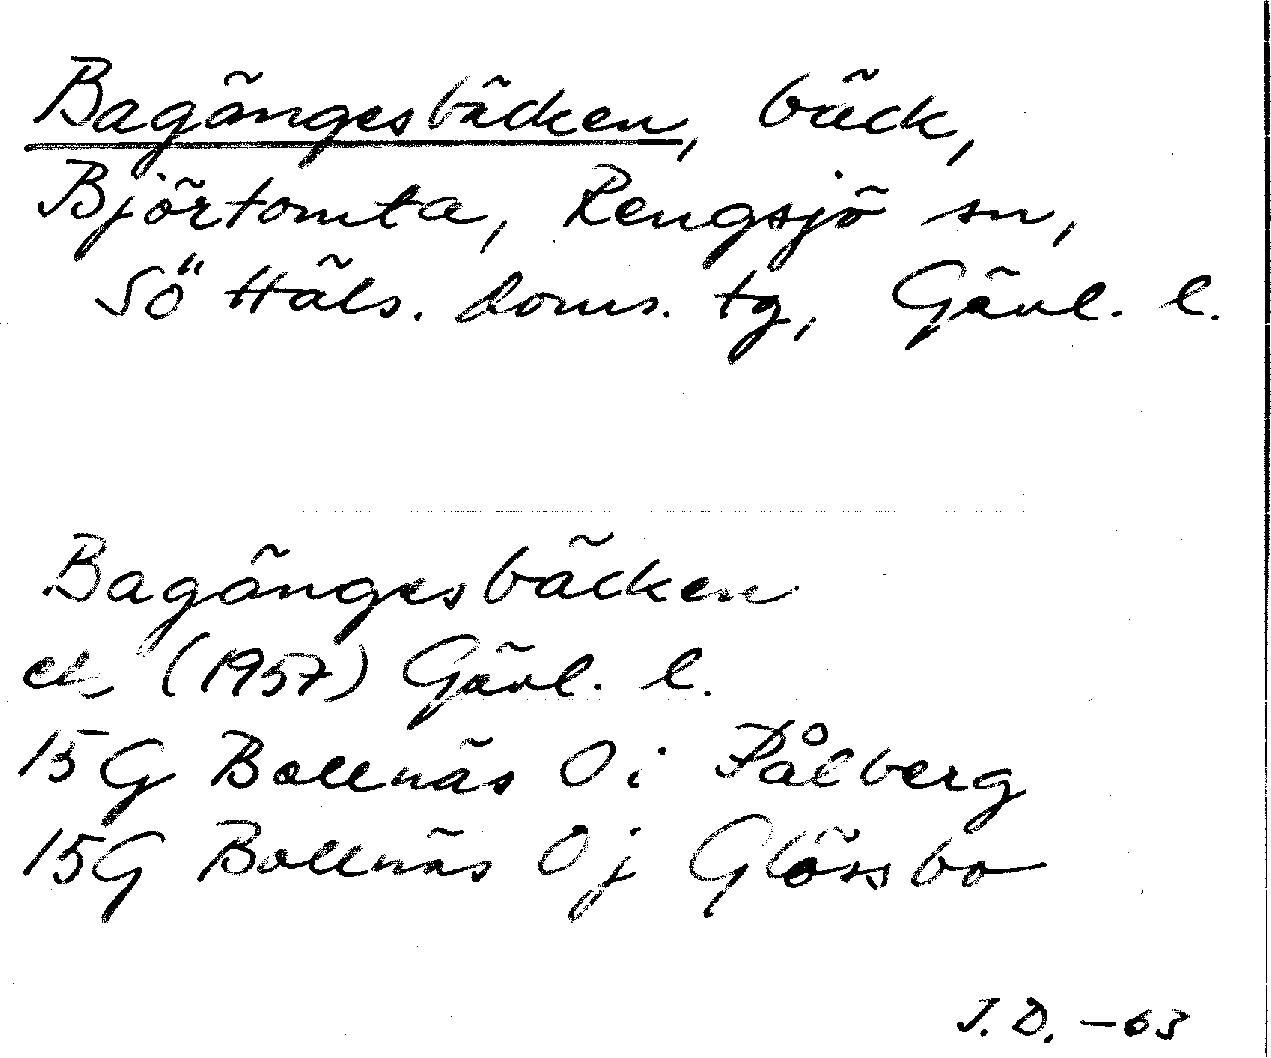 Bagängesbäcken, bäck,
Björtomta, Rengsjö sn,
Sö Häls. doms. tg, Gävl. l.
Bagängesbäcken
ek (1957) Gävl. l.
15G Bollnäs 0 i Pålberg
15G Bollnäs 0 j Glössbo
J. D. -63